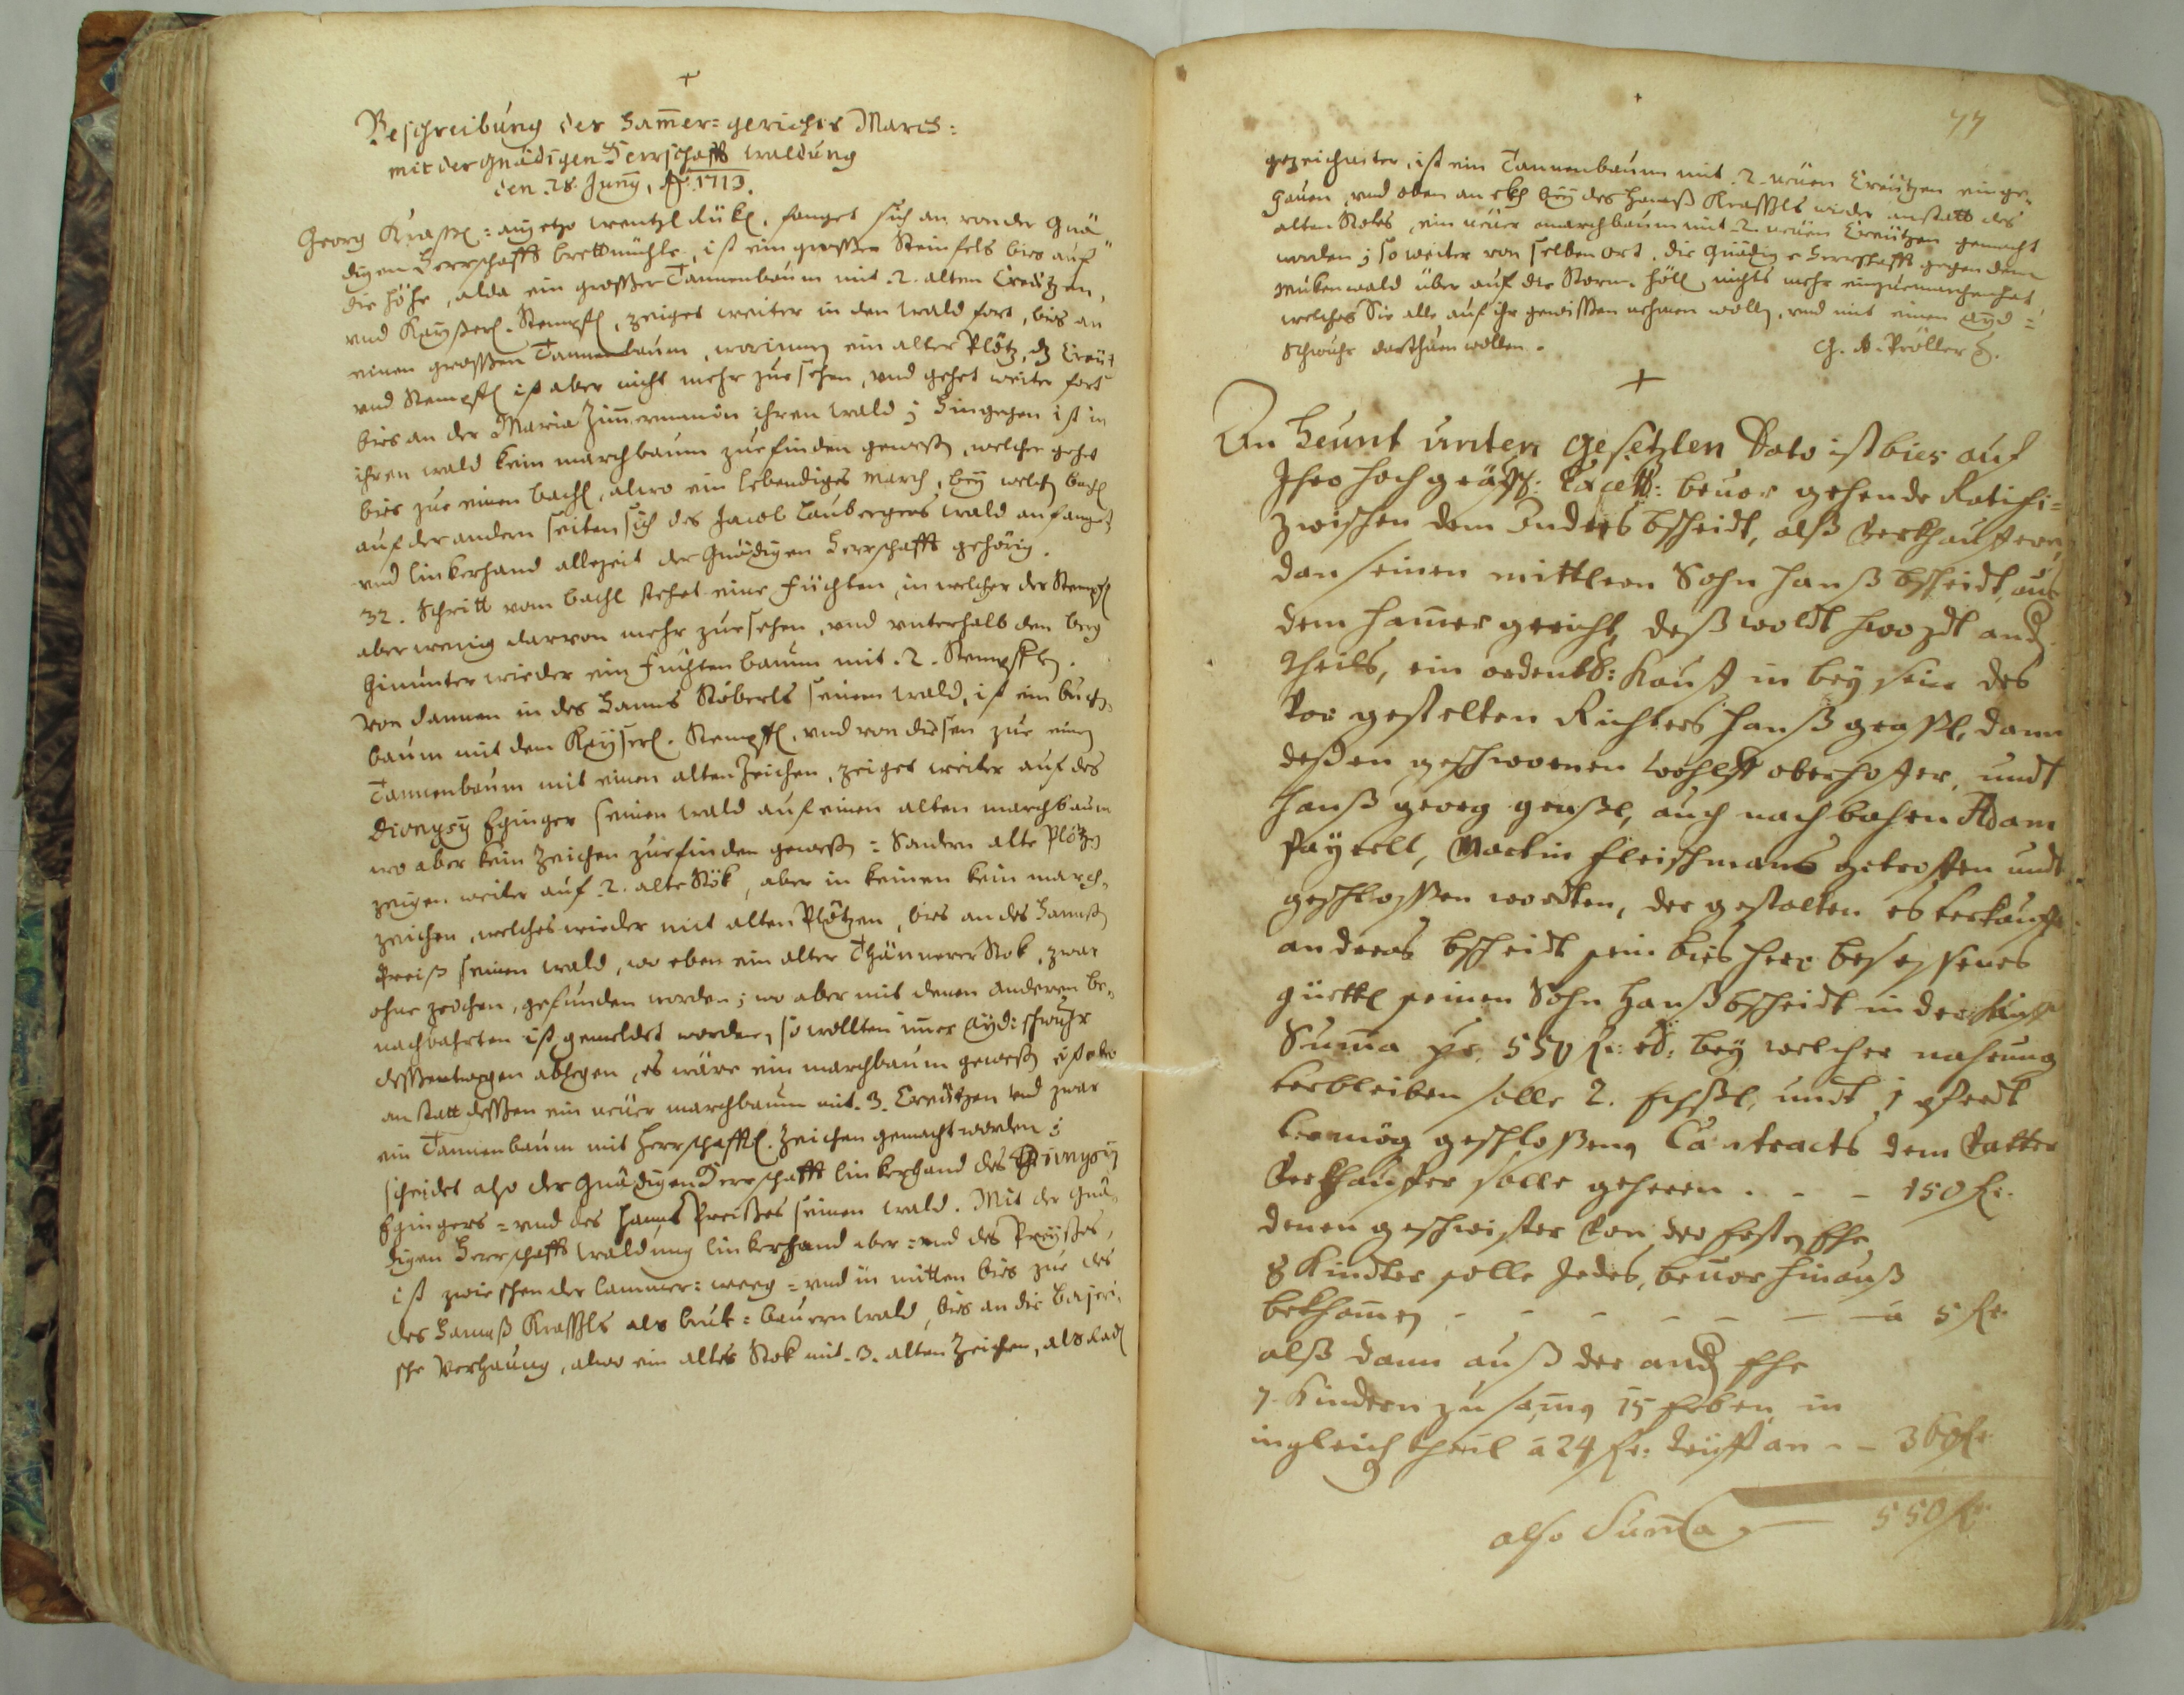 Beschreibung der Ham̄er=gerichts March:
mit der Gnädigen Herrschafft waldung
den .28. Junÿ, Ao. 1713.
Georg Krassl: anjetzo wentzl fanget sich an von der Gnä
digen Herrschafft brettmühle, ist ein grosser Steinfels bies auf
die Höhe, alda ein grosser Tannenbaum mit .2. alten Creützen,
und Kaÿßerl. Stempfl, zeiget weiter in den wald fort, bies an
einen grossen Tannenbaum, worinnen ein alter Plötz, dz Creüt
und Stempfl ist aber nicht mehr zue sehen, und gehet weiter fort
bies an der Maria Zim̄ermanin ihren wald; Hingegen ist in
ihren wald kein marchbaum zue finden geweßen, welcher gehet
bies zue einen bachl, alwo ein lebendiges march, beÿ welchen bachl
auf der andern seiten sich des Jacob Laubergers wald anfanget
und linkerhand allezeit der Gnädigen Herrschafft gehörig.
32. Schritt vom bachl stehet eine füchten, in welcher der Stempfl
aber wenig darvon mehr zue sehen, und unterhalb den berg
hinunter wieder ein füchtenbaum mit .2. Stempflen.
Von dannen in des Hanns Köberls seinen wald, ist ein buchen=
baum mit dem Kaÿserl. Stempfl, und von diesen zue einen
Tannenbaum mit einen alten Zeichen, zeiget weiter auf des
Dionysÿ Eginger seinen wald auf einen alten marchbaum
wo aber kein Zeichen zue finden geweßen: Sondern alte Plötzen
zeigen weiter auf .2. alte Stök, aber in keinen kein march=
zeichen, welches wieder mit alten Plötzen, bies an des Hannß
Preiß seinen wald, wo eben ein alter Thännerer Stok, zwar
ohne zeichen, gefunden worden; wo aber mit denen anderen be=
nachbahrten ist gemeldet worden, so wollten im̄er Aÿdschwuhr
dessentwegen ablegen, es wäre ein marchbaum geweßen, ist aber
anstatt dessen ein neüer marchbaum mit .3. Creützen und zwar
ein Tannenbaum mit Herrschafftl. Zeichen gemacht worden;
scheidet also der Gnädigen Herrschafft linkerhand des Dionysÿ
Egingers= und des Hanns Preißes seinen wald. Mit der Gnä=
digen Herrschaffts waldung linkerhand aber= und des Preÿßes,
ist zwieschen der Cammer: weeg= und in mitten bies zue des
des Hannß Krassls als bruk=bauern wald, bies an die bajeri=
sche Verhauung, alwo ein alter Stok mit .3. alten Zeichen, als
77
gezeichneter, ist ein Tannenbaum mit .2. neüen Creützen einge=
hauen, und oben an beÿ des Hannß Krassls wieder anstatt des
alten Stokes, ein neüer marchbaum mit .2. neüen Creützen gemacht
worden; so weiter von selben ort, die Gnädige Herrschafft gegen dem
Mukenwald über auf die höll, nichts mehr einzuemarchen hat
welches Sie alle auf ihr gewissen nehmen wollen, und mit einen Aÿd=
Schwuhr darthuen wollen.
An Heunt unten gesetzten Dato ist bies auf
Ihro Hochgräffl: Excell: bevor gehende Ratifi=
zwischen dem Endres bscheidt, alß Verkhauffern
dan seinen mittleren Sohn Hanß bscheidt, aus
dem Ham̄er gericht, deß woldt hwozdt and
theils, ein ordentl: Kauff in beÿsein des
Vor gestelten Richters Hanß graßl, dann
deßen geschwornen Wohlff oberhoffer, undt
Hanß georg graßl, auch nachbahren Adam
Paÿrell, Martin fleischmans getroffen undt
geschlossen wordten, der gestalten es Verkaufft
andreas bscheidt sein bieshero besessenes
güettl seinen Sohn Hanß bscheidt in der Kauff
Sum̄a per 550 fl: beÿ welcher nahrung
verbleiben solle 2. undt 1 pferdt
Vermög geschloßenen Contracts dem Vatter
Verkhauffer solle geheren . - - 150 fl.
denen geschwister Von der Ersten Ehe
8 Kindter solle Jedes, bevor hinauß
bekhom̄en - - - - - - - à 5 fl.
alß dann auß der and Ehe
7. Kindern zusam̄en 15 Erben in
in gleich theil à 24 fl: trifft an - - 360 fl.
also Sum̄a - 550 fl.